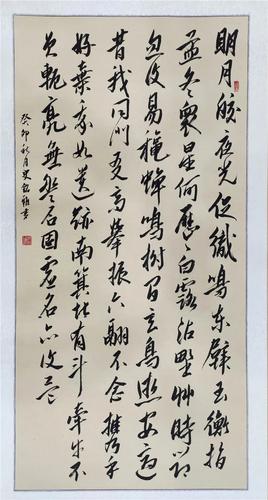 明月皎夜光促織鳴東壁玉衡指
孟冬眾星何歷々白露沾野艸時節
忽復易秋蟬鳴樹間玄鳥逝安適
昔我同門友高舉振六翮不念攜手
好棄我如遺跡南箕北有斗牽牛不
負軛良無盤石固虛名復何益
癸卯秋月書